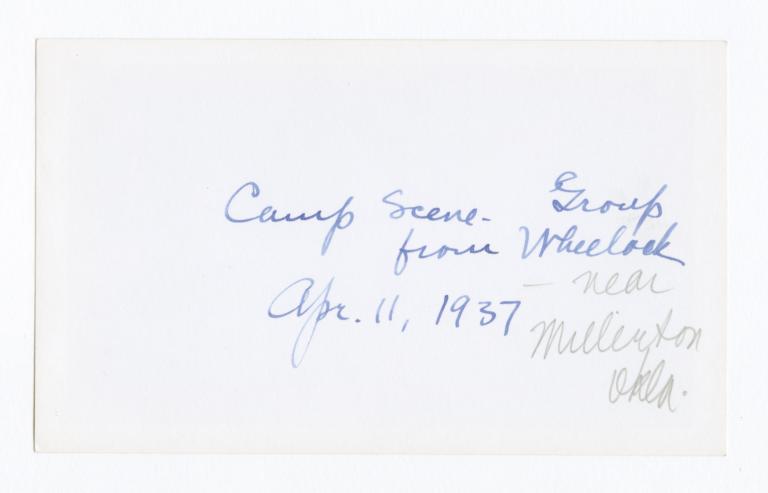 Camp Scene - Group
from Wheelock
- near
Apr. 11, 1937
Millerton
Okla.